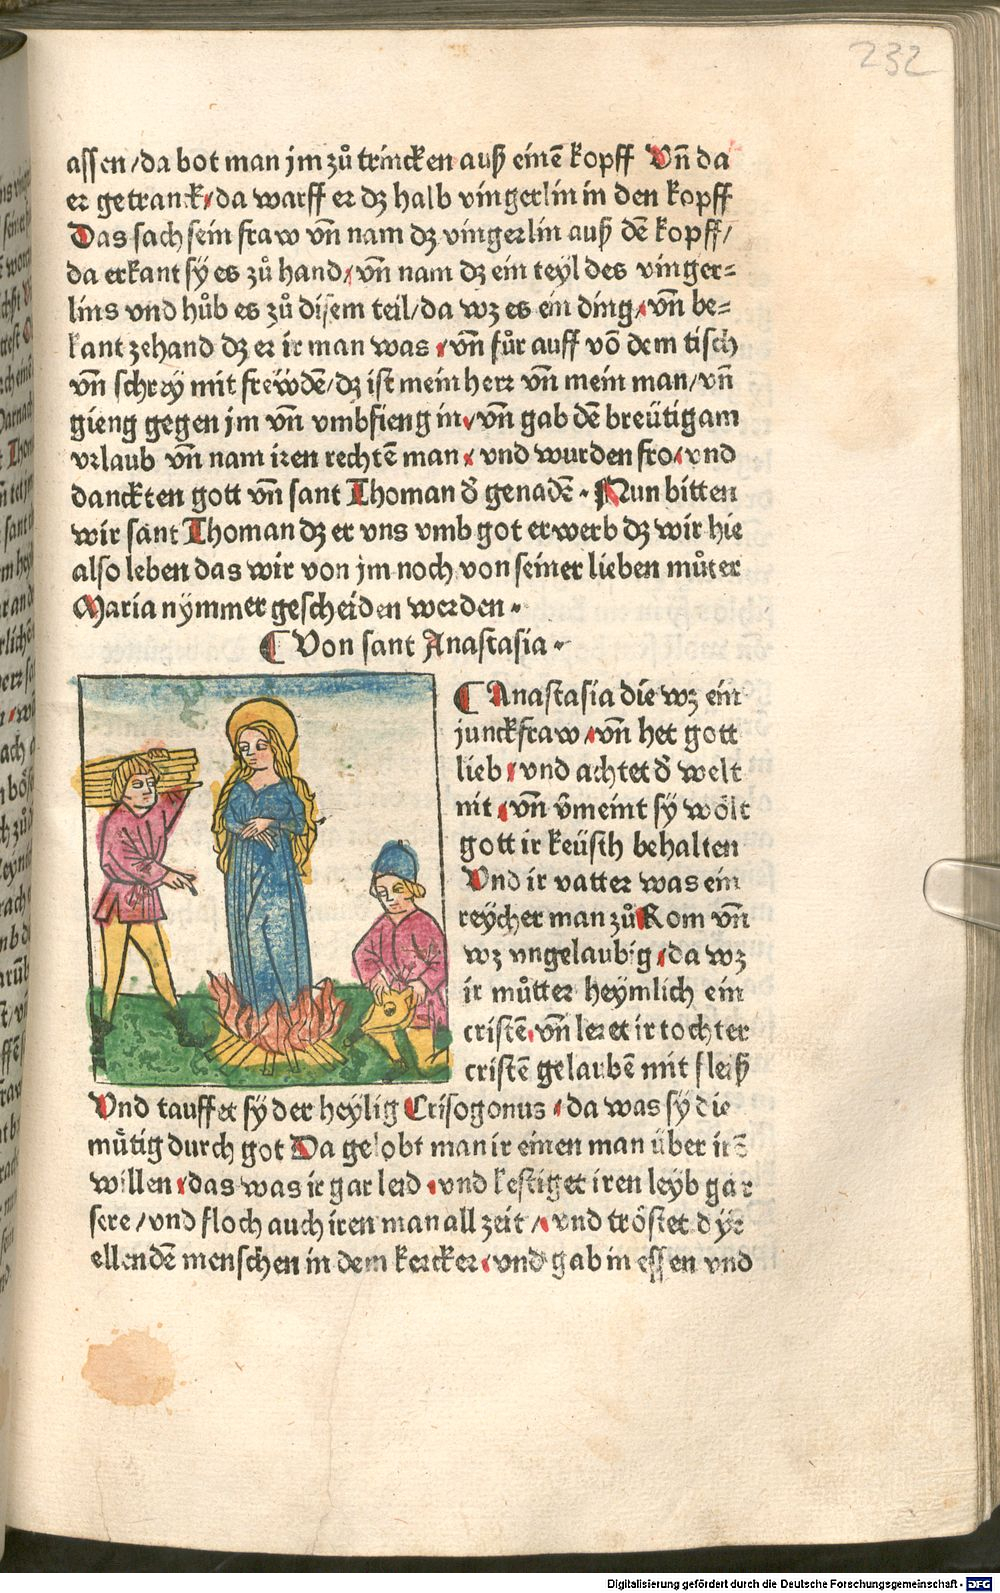 232
assen/da bot man jm zů trincken auß einē kopff Vn̄ da
er getranck/da warff er dz halb vingerlin in den kopff
Das sach sein fraw vn̄ nam dz vingerlin auß dē kopff/
da erkant sÿ es zů hand/vn̄ nam dz ein teyl des vinger⸗
lins vnd hůb es zů disem teil/da wz es ein ding/vn̄ be⸗
kant zehand dz er ir man was/vn̄ fůr auff vō dem tisch
vn̄ schreÿ mit frewdē/dz ist mein herr vn̄ mein man/vn̄
gieng gegen jm vn̄ vmbfieng in/vn̄ gab dē breütigam
vrlaub vn̄ nam iren rechtē man/vnd wurden fro/vnd
danckten gott vn̄ sant Thoman d̄ genadē. Nun bitten
wir sant Thoman dz er vns vmb got erwerb dz wir hie
also leben das wir von jm noch von seiner lieben můter
Maria nÿmmer gescheiden werden.
¶ Von sant Anastasia.
¶ Anastasia die wz ein
junckfraw/vn̄ het gott
lieb/vnd achtet d̄ welt
nit/vn̄ v̄meint sÿ wölt
gott ir keüsch behalten
Vnd ir vatter was ein
reÿcher man zů Rom vn̄
wz vngelaubig/da wz
ir můtter heÿmlich ein
cristē/vn̄ leret ir tochter
cristē gelaubē mit fleiß
Vnd tauffet sÿ der heÿlig Crisogonus/da was sÿ die
mütig durch got Da gelobt man ir einen man über irē
willen/das was ir gar leid/vnd kestiget iren leÿb gar
sere/vnd floch auch iren man all zeit/vnd tröstet dÿe
ellendē menschen in dem kercker/vnd gab in essen vnd
Digitalisierung gefördert durch die Deutsche Forschungsgemeinschaft - DFG